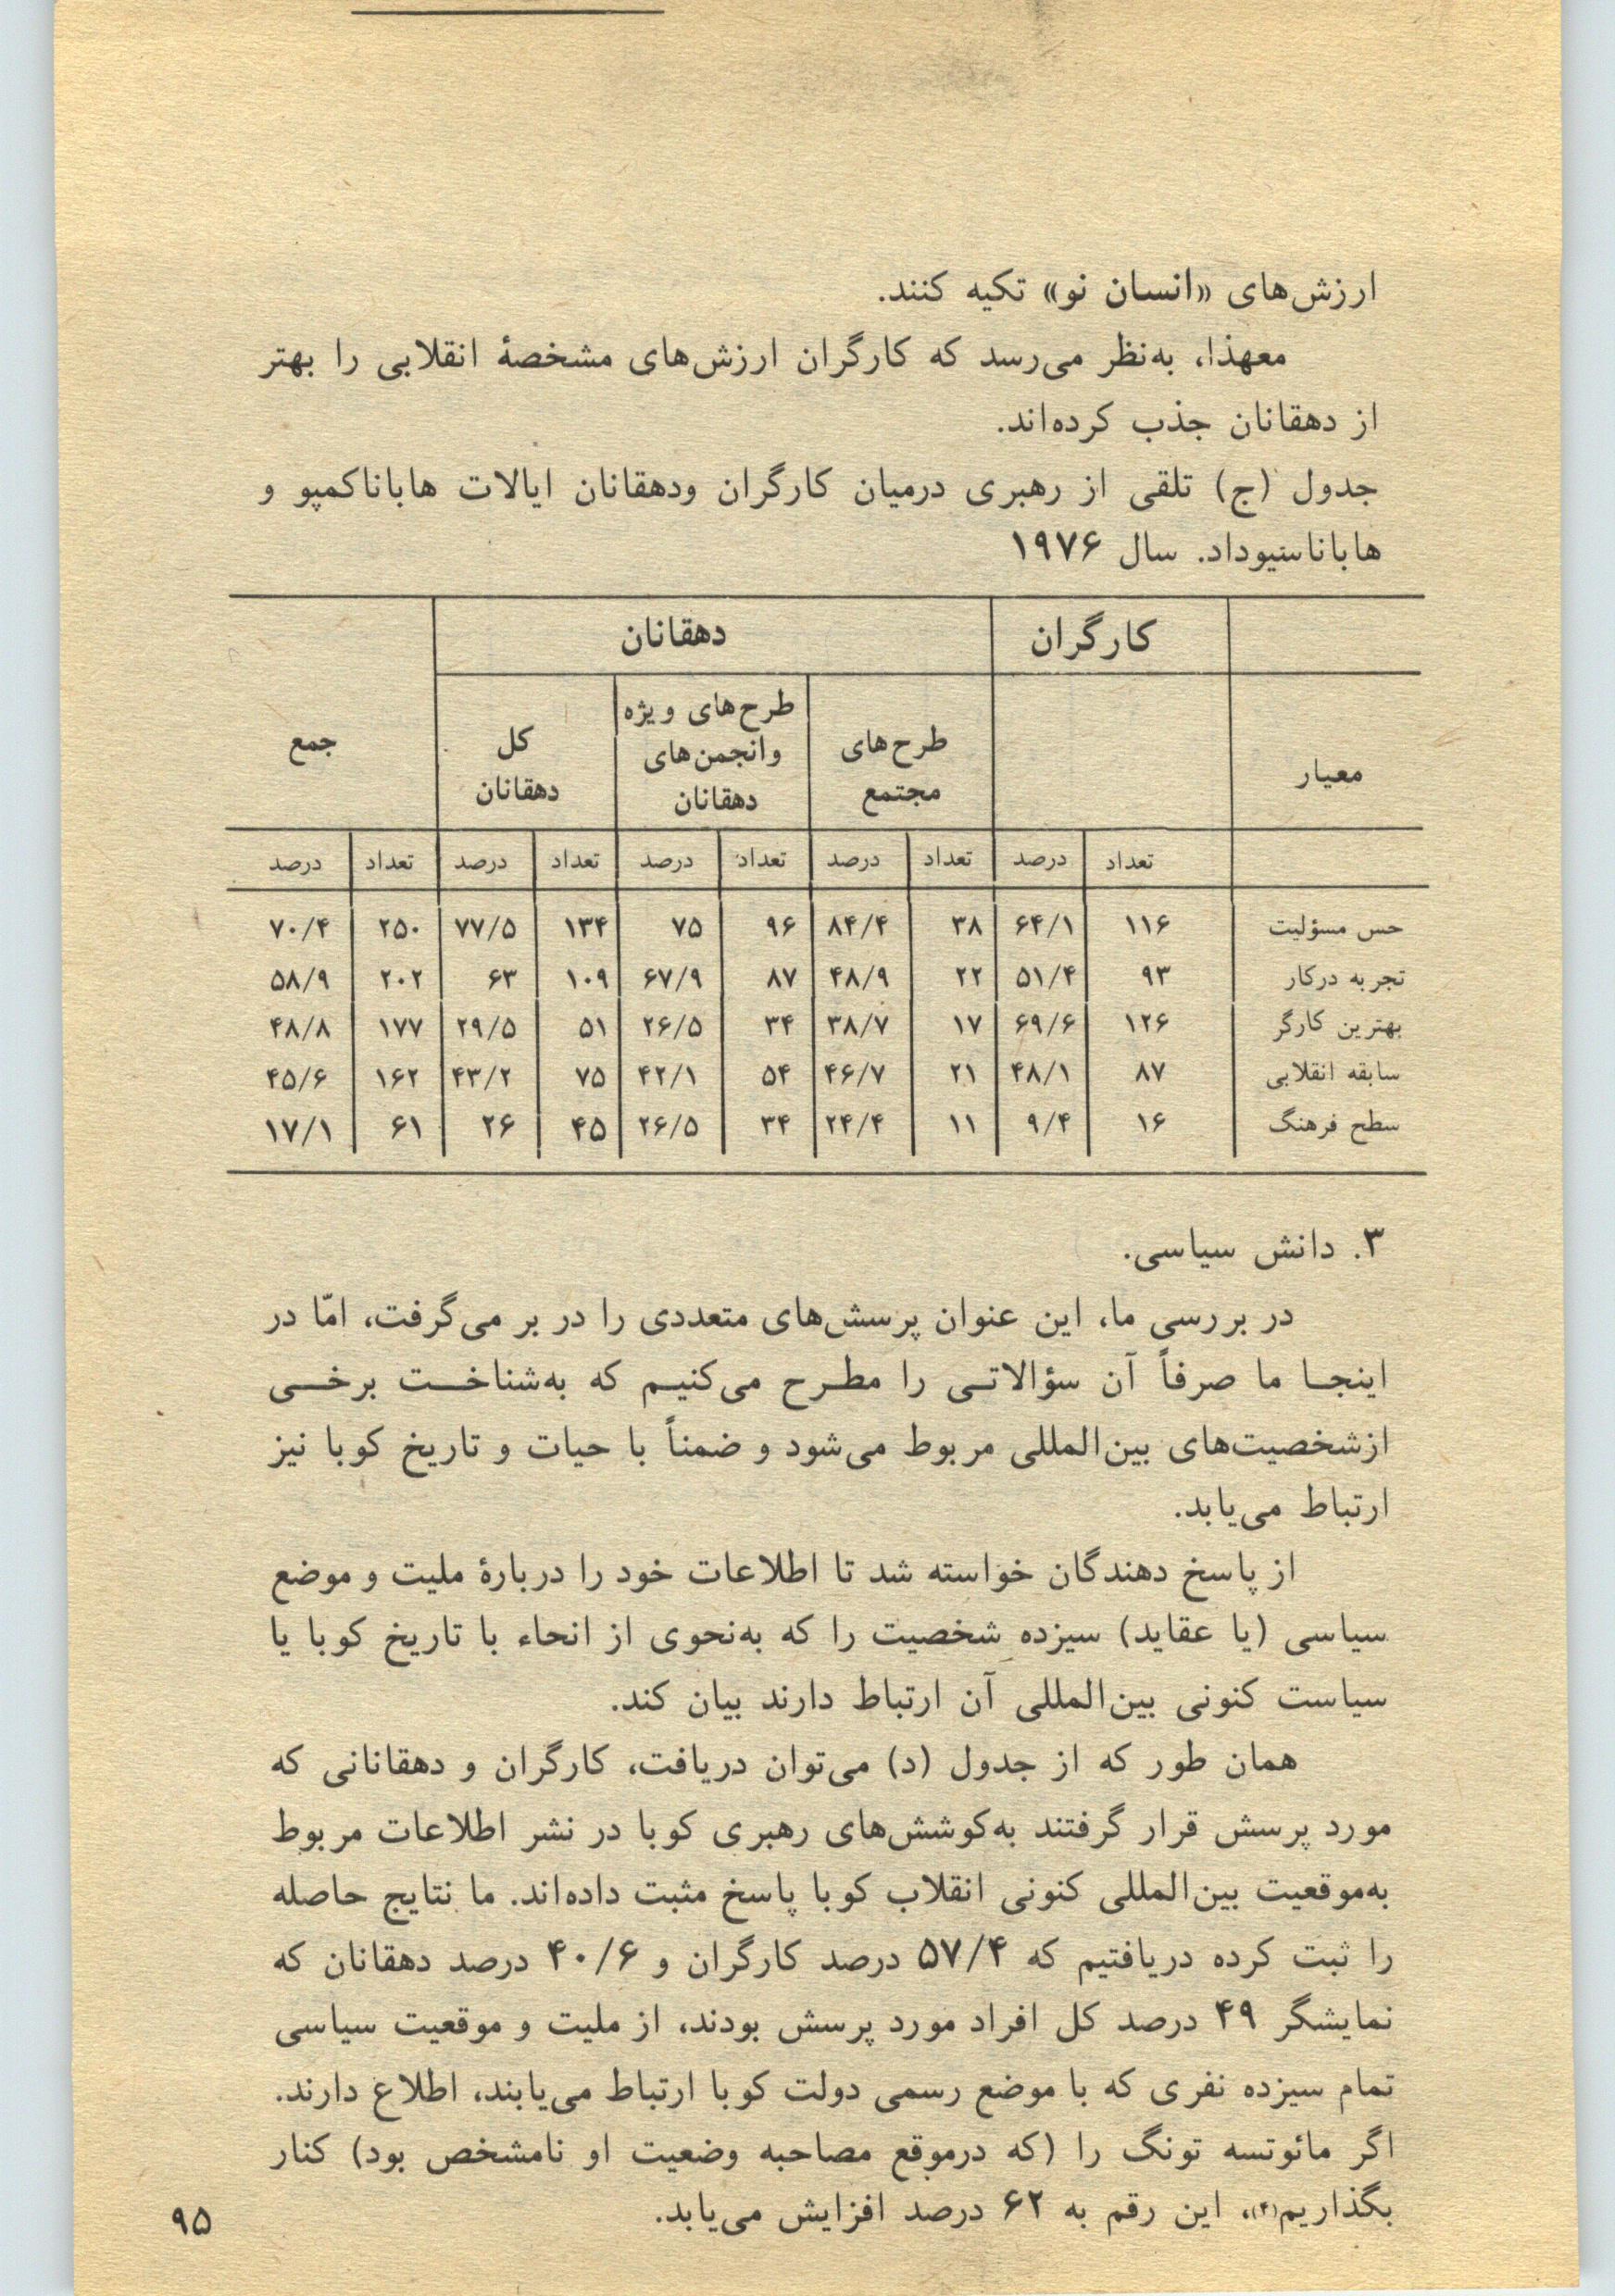 ارزش‌های «انسان نو» تکیه کنند.
معهذا، به‌نظر می‌رسد که کارگران ارزش‌های مشخصهٔ انقلابی را بهتر
از دهقانان جذب کرده‌اند.
جدول (ج) تلقی از رهبری درمیان کارگران ودهقانان ایالات هاباناکمپو و
هاباناسیوداد. سال ۱۹۷۶
کارگران دهقانان
معیار طرح‌های مجتمع طرح‌های ویژه وانجمن‌های دهقانان کل دهقانان جمع
تعداد درصد تعداد درصد تعداد درصد تعداد درصد تعداد درصد
حس مسؤلیت ۱۱۶ ۶۴/۱ ۳۸ ۸۴/۴ ۹۶ ۷۵ ۱۳۴ ۷۷/۵ ۲۵۰ ۷۰/۴
تجربه درکار ۹۳ ۵۱/۴ ۲۲ ۴۸/۹ ۸۷ ۶۷/۹ ۱۰۹ ۶۳ ۲۰۲ ۵۸/۹
بهترین کارگر ۱۲۶ ۶۹/۶ ۱۷ ۳۸/۷ ۳۴ ۲۶/۵ ۵۱ ۲۹/۵ ۱۷۷ ۴۸/۸
سابقه انقلابی ۸۷ ۴۸/۱ ۲۱ ۴۶/۷ ۵۴ ۴۲/۱ ۷۵ ۴۳/۲ ۱۶۲ ۴۵/۶
سطح فرهنگ ۱۶ ۹/۴ ۱۱ ۲۴/۴ ۳۴ ۲۶/۵ ۴۵ ۲۶ ۶۱ ۱۷/۱
۳. دانش سیاسی.
در بررسی ما، این عنوان پرسش‌های متعددی را در بر می‌گرفت، امّا در
اینجا ما صرفاً آن سؤالاتی را مطرح می‌کنیم که به‌شناخت برخی
ازشخصیت‌های بین‌المللی مربوط می‌شود و ضمناً با حیات و تاریخ کوبا نیز
ارتباط می‌یابد.
از پاسخ دهندگان خواسته شد تا اطلاعات خود را دربارهٔ ملیت و موضع
سیاسی (یا عقاید) سیزده شخصیت را که به‌نحوی از انحاء با تاریخ کوبا یا
سیاست کنونی بین‌المللی آن ارتباط دارند بیان کند.
همان طور که از جدول (د) می‌توان دریافت، کارگران و دهقانانی که
مورد پرسش قرار گرفتند به‌کوشش‌های رهبری کوبا در نشر اطلاعات مربوط
به‌موقعیت بین‌المللی کنونی انقلاب کوبا پاسخ مثبت داده‌اند. ما نتایج حاصله
را ثبت کرده دریافتیم که ۵۷/۴ درصد کارگران و ۴۰/۶ درصد دهقانان که
نمایشگر ۴۹ درصد کل افراد مورد پرسش بودند، از ملیت و موقعیت سیاسی
تمام سیزده نفری که با موضع رسمی دولت کوبا ارتباط می‌یابند، اطلاع دارند.
اگر مائوتسه تونگ را (که درموقع مصاحبه وضعیت او نامشخص بود) کنار
بگذاریم(۴)، این رقم به ۶۲ درصد افزایش می‌یابد.
۹۵